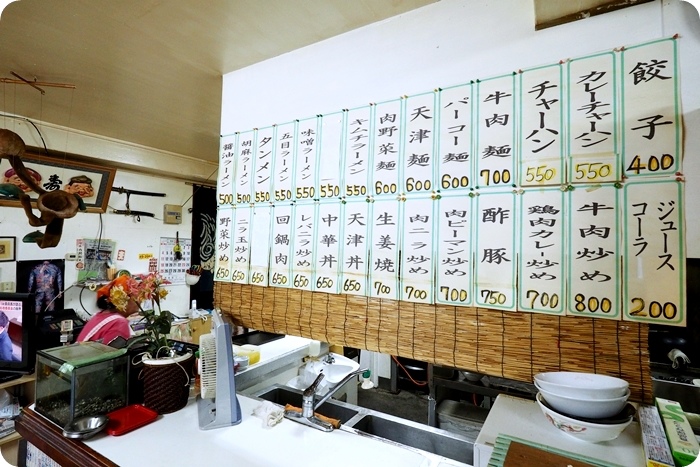 餃子 400
カレーチャーハン 550
チャーハン 550
牛肉麺 700
バーコー麺 600
天津麺 600
肉野菜麺 600
キムチラーメン 550
550
味噌ラーメン 550
五目ラーメン 550
タンメン 550
胡麻ラーメン 500
醤油ラーメン 500
ジュース
コーラ 200
牛肉炒め 800
鶏肉カレー炒め 700
酢豚 750
肉ピーマン炒め 700
肉ニラ炒め 700
生姜焼 700
天津丼 650
中華丼 650
レバニラ炒め 650
回鍋肉 650
650
ニラ玉炒め 650
野菜炒め 650
寿